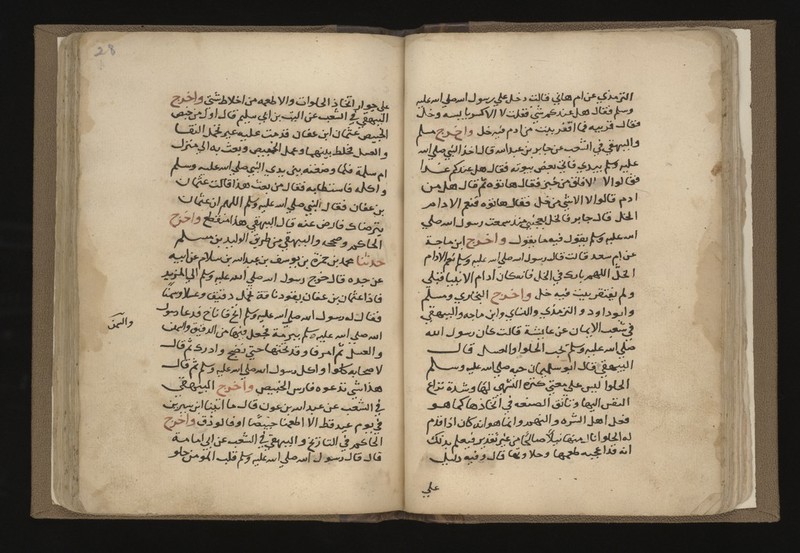 الترمذي عن ام هاني قالت دخل علي رسول الله صلي الله عليه
وسلم فقال هل عندكم شي فقلت لا الا كسر يابسه وخل
فقال قربيه فما اقفر بيت من ادم فيه خل واخرج مسلم
والبيهقي في الشعب عن جابر بن عبد الله قال اخذ النبي صلي الله
عليه وسلم بيدي فاتي بعض بيوته فقال هل عندكم غدا
فقالوا لا الا فلق من خبز فقال هاتوه ثم قال هل من
ادم قالوا لا الا شي من خل فقال هاتوه فنعم الادام
الخل قال جابر فالخل يعجبني منذ سمعت رسول الله صلي
الله عليه وسلم يقول فيه ما يقول واخرج ابن ماجة
عن ام سعد قالت قال رسول الله صلي الله عليه وسلم نعم الادام
الخل اللهم بارك في الخل فانه كان ادام الانبيا قبلي
ولم يفتقر بيت فيه خل واخرج البخاري ومسلم
وابو داود والترمذي والنساي وابن ماجه والبيهقي
في شعب الايمان عن عايشة قالت كان رسول الله
صلي الله عليه وسلم يحب الحلوا والعسل قال
البيهقي قال ابو سليمان حبه صلي الله عليه وسلم
الحلوا ليس علي معني كثرة التشهي لها وشدة نزاع
النفس اليها وتانق الصنعه في اتخاذها كما هو
فعل اهل الشره والنهم وانما هو انه كان اذا قدم
له الحلوا نال منها نيلا صالحا من غير تقذير فيعلم بذلك
انه قد اعجبه طعمها وحلاوتها قال وفيه دليل
علي
28
علي جواز اتخاذ الحلوات والاطعمه من اخلاط شتي واخرج
البيهقي في الشعب عن الليث بن ابي سليم قال اول من خبص
الخبيص عثمان ابن عفان قدمت عليه عير تحمل النقا
والعسل فخلط بينهما وعمل الخبيص وبعث به الي منزل
ام سلمة فلما وضعته بين يدي النبي صلي الله عليه وسلم
واكله فاستطابه فقال من بعث هذا قالت عثمان
بن عفان فقال النبي صلي الله عليه وسلم اللهم ان عثمان
يترضاك فارض عنه قال البيهقي هذا منقطع واخرج
الحاكم وصححه والبيهقي من طرق الوليد بن مسلم
حدثنا محمد بن حمزة بن يوسف بن عبد الله بن سلام عن ابيه
عن جده قال خرج رسول الله صلي الله عليه وسلم الي المربد
فاذا عثمان بن عفان يقود ناقة تحمل دقيقا وعسلا وسمنا
فقال له رسول الله صلي الله عليه وسلم انخ فاناخ فدعا رسول
الله صلي الله عليه وسلم ببرمة فجعل فيها من الدقيق والسمن
والعسل ثم امر فاوقد تحتها حتي نضج وادرك ثم قال
لاصحابه كلوا واكل رسول الله صلي الله عليه وسلم ثم قال
هذا شي تدعوه فارس الخبيص واخرج البيهقي
في الشعب عن عبد الله بن عون قال ما اتينا ابن سيرين
في يوم عيد قط الا اطعمنا خبيصا او فالوذق واخرج
الحاكم في التاريخ والبيهقي في الشعب عن ابي امامة
قال قال رسول الله صلي الله عليه وسلم قلب المومن حلو
والسمن